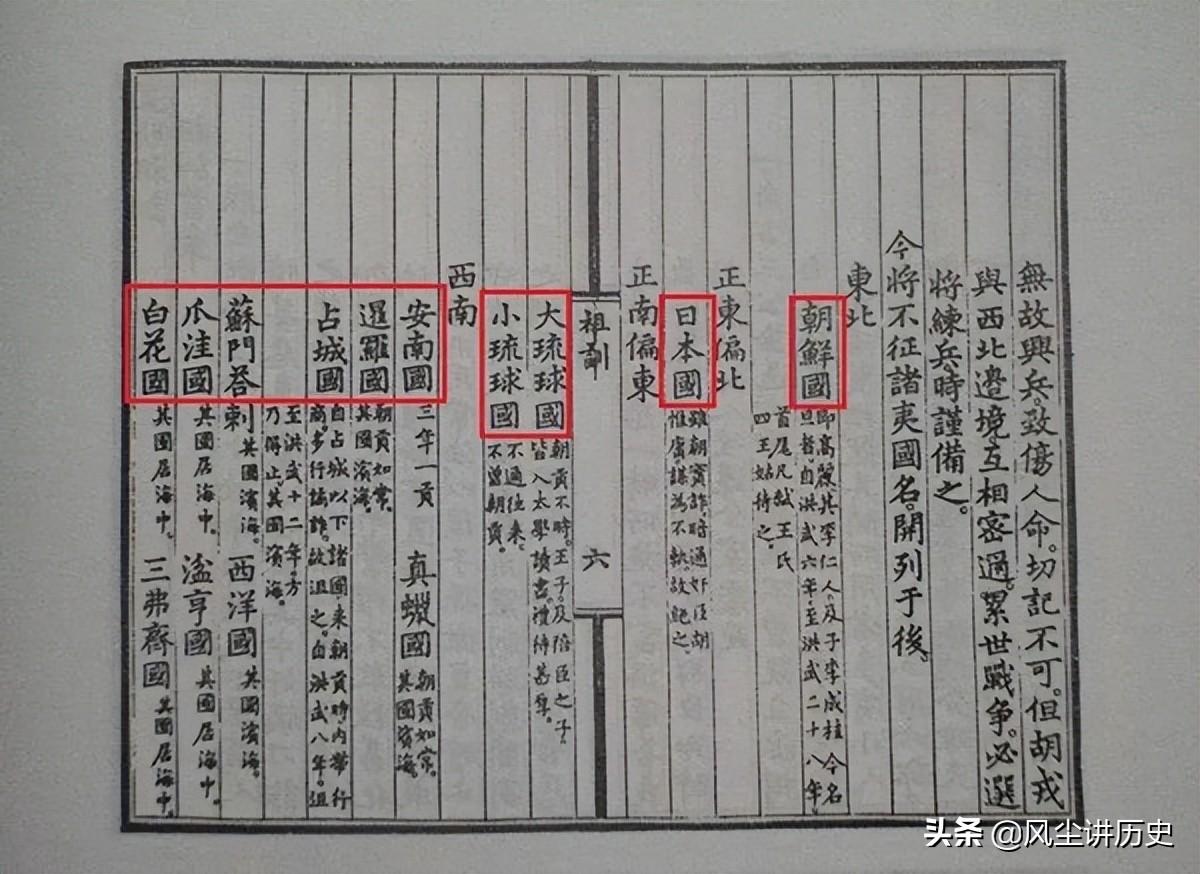 無故興兵、致傷人命。切記不可。但胡戎
與西北邊境、互相密邇。累世戰爭。必選
將練兵、時謹備之。
今將不征諸夷國名。開列于後。
東北
朝鮮國
即高麗。其李仁人、及子李成桂今名
旦者、自洪武六年、至洪武二十八年、
首尾凡弒王氏
四王。姑待之。
正東偏北
日本國
雖朝實詐、暗通奸臣胡
惟庸、謀為不軌、故絕之。
正南偏東
大琉球國
朝貢不時。王子。及陪臣之子。
皆入太學讀書。禮待甚厚。
小琉球國
不通往來。
不曾朝貢。
祖訓
六
西南
安南國
三年一貢
真蠟國
朝貢如常。
其國濱海。
暹羅國
朝貢如常。
其國濱海。
占城國
自占城以下諸國、來朝貢時、內帶行
商。多行譎詐。故沮之。自洪武八年。沮
至洪武十二年。方
乃得止其國濱海。
蘇門荅剌
其國濱海。
西洋國
其國濱海。
爪洼國
其國居海中。
湓亨國
其國居海中。
白花國
其國居海中。
三弗齊國
其國居海中。
头条 @风尘讲历史